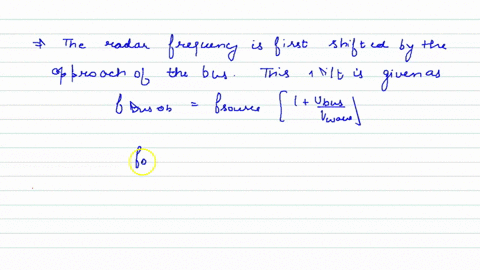 ⇒ The radar frequency is first shifted by the
approach of the bus. This shift is given as
f bus ob = f source [ 1 + v bus / v wave ]
fo